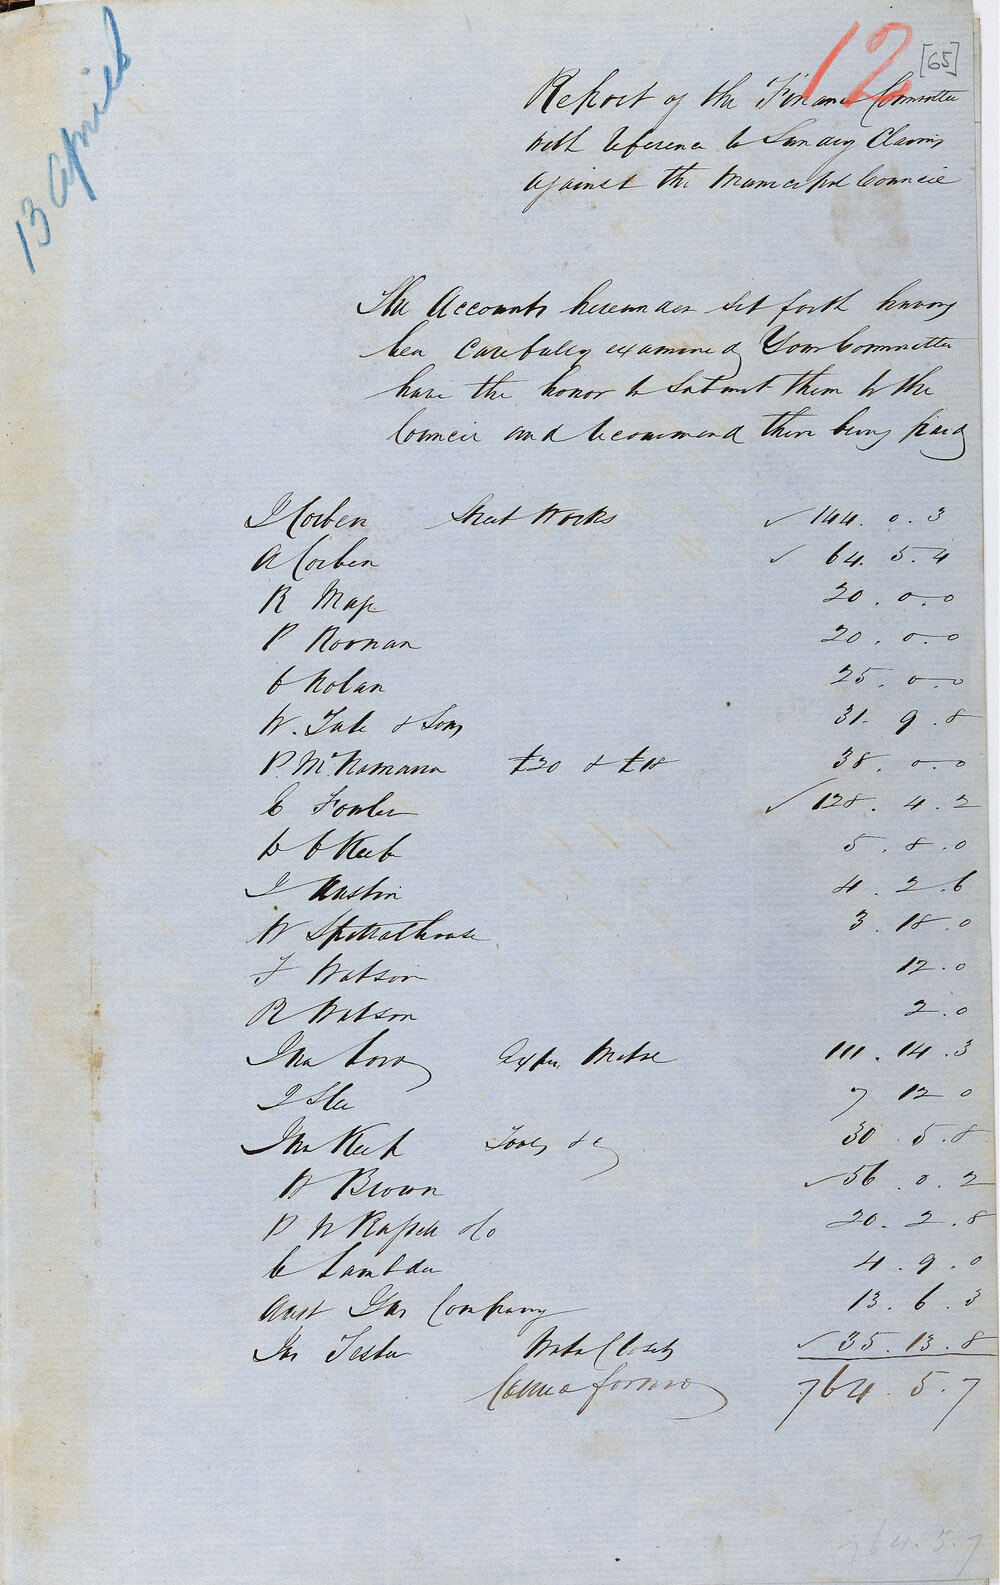 12
[65]
13 April
Report of the Finance Committee
with reference to Sundry Claims
against the Municipal Council
The Accounts hereunder set forth having
been carefully examined Your Committee
have the honor to submit them to the
Council and recommend there being paid
J Corben Street Works ✓ 144. 0. 3
A Corben ✓ 64. 5. 4
R 20. 0. 0
P Noonan 20. 0. 0
Nolan 25. 0. 0
W. Tate & Sons 31. 9. 8
P. McNamara £20 & £18 38. 0. 0
C Fowler ✓ 128. 4. 2
5. 8. 0
J Austin 4. 2. 6
W Spittalhouse 3. 18. 0
J Watson 12. 0
R Watson 2. 0
Jno 111. 14. 3
7 12 0
Jno Keep &c 30. 5. 8
W Brown ✓ 56. 0. 2
P N Russell &Co 20. 2. 8
4. 9. 0
Aust Gas Company 13. 6. 3
Water Closets ✓ 35. 13. 8
Carried forward 764. 5. 7
764. 5. 7